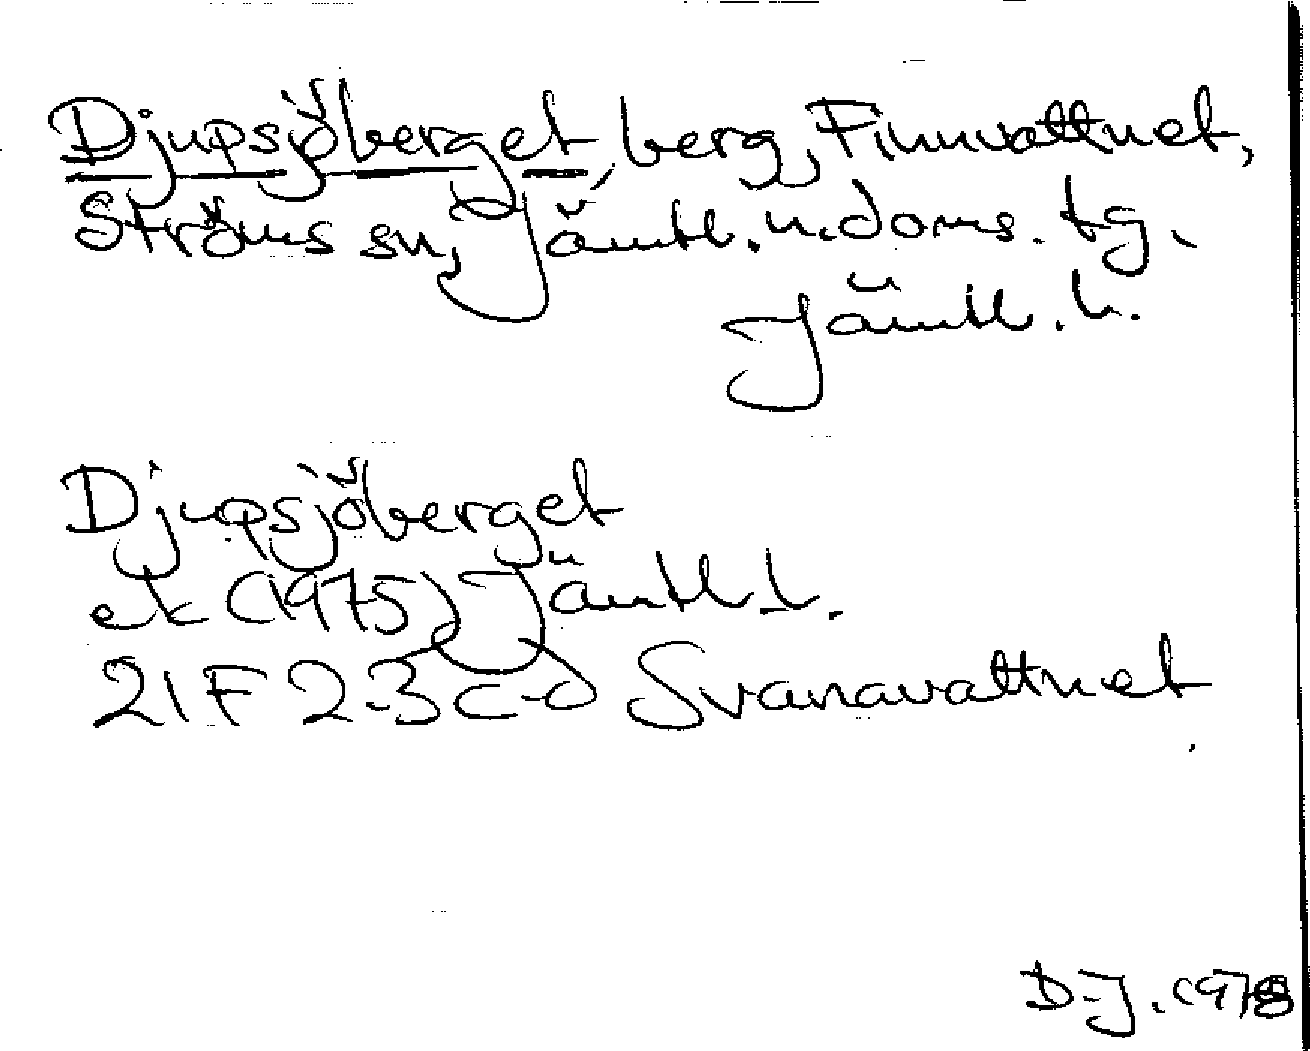 Djupsjöberget, berg, Finnvattnet,
Ströms sn, Jämtl. n. doms. tg.
Jämtl. l.
Djupsjöberget
ek (1975) Jämtl l.
21F 2-3 c-d Svanavattnet
D-J. 1978